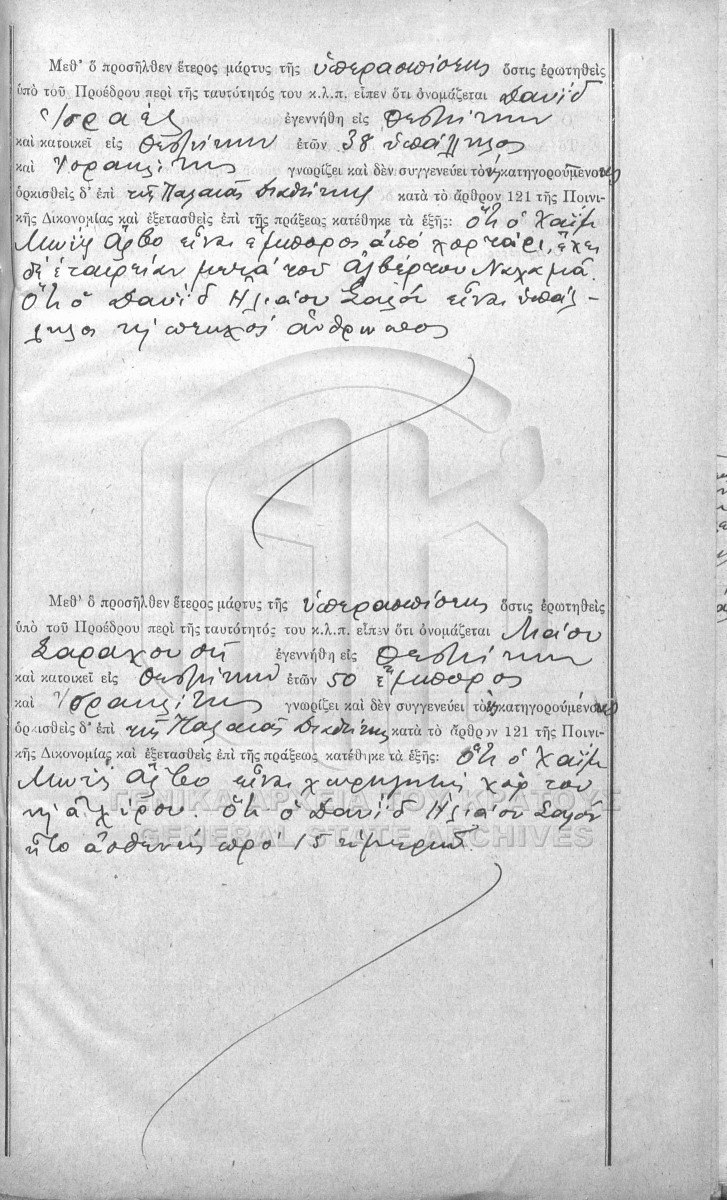 Μεθ' ὃ προσῆλθεν ἕτερος μάρτυς τῆς ὑπερασπίσεως ὅστις ἐρωτηθεὶς
ὑπὸ τοῦ Προέδρου περὶ τῆς ταυτότητός του κ.λ.π. εἶπεν ὅτι ὀνομάζεται Δαυὶδ
Ἰσραὲλ ἐγεννήθη εἰς Θεσ/νίκην
καὶ κατοικεῖ εἰς Θεσ/νίκην ἐτῶν 38 ὑπάλληλος
καὶ Ἰσραηλίτης γνωρίζει καὶ δὲν συγγενεύει τοὺς κατηγορουμένους
ὁρκισθεὶς δ' ἐπὶ τῆς Παλαιᾶς Διαθήκης κατὰ τὸ ἄρθρον 121 τῆς Ποινι-
κῆς Δικονομίας καὶ ἐξετασθεὶς ἐπὶ τῆς πράξεως κατέθηκε τὰ ἑξῆς: ὅτι ὁ Χαΐμ
Μωϊς Ἄλβο εἶναι ἔμπορος ἀπὸ χορτάρι, ἔχει
δὲ ἑταιρείαν μετὰ τοῦ Ἀλβέρτου Ναχαμᾶ.
Ὅτι ὁ Δαυὶδ Ἠλιάου Σαλὸν εἶναι ὑπάλ-
ληλος πτωχὸς ἄνθρωπος
Μεθ' ὃ προσῆλθεν ἕτερος μάρτυς τῆς ὑπερασπίσεως ὅστις ἐρωτηθεὶς
ὑπὸ τοῦ Προέδρου περὶ τῆς ταυτότητός του κ.λ.π. εἶπεν ὅτι ὀνομάζεται
ἐγεννήθη εἰς Θεσ/νίκην
καὶ κατοικεῖ εἰς Θεσ/νίκην ἐτῶν 50 ἔμπορος
καὶ Ἰσραηλίτης γνωρίζει καὶ δὲν συγγενεύει τοὺς κατηγορουμένους
ὁρκισθεὶς δ' ἐπὶ τῆς Παλαιᾶς Διαθήκης κατὰ τὸ ἄρθρον 121 τῆς Ποινι-
κῆς Δικονομίας καὶ ἐξετασθεὶς ἐπὶ τῆς πράξεως κατέθηκε τὰ ἑξῆς: ὅτι ὁ Χαΐμ
Μωϊς Ἄλβο εἶναι χόρτου
ἀχύρου. Ὅτι ὁ Δαυὶδ Ἠλιάου Σαλὸν
ἦτο ἀσθενὴς πρὸ 15 ἡμερῶν.
ΓΕΝΙΚΑ ΑΡΧΕΙΑ ΤΟΥ ΚΡΑΤΟΥΣ
GENERAL STATE ARCHIVES